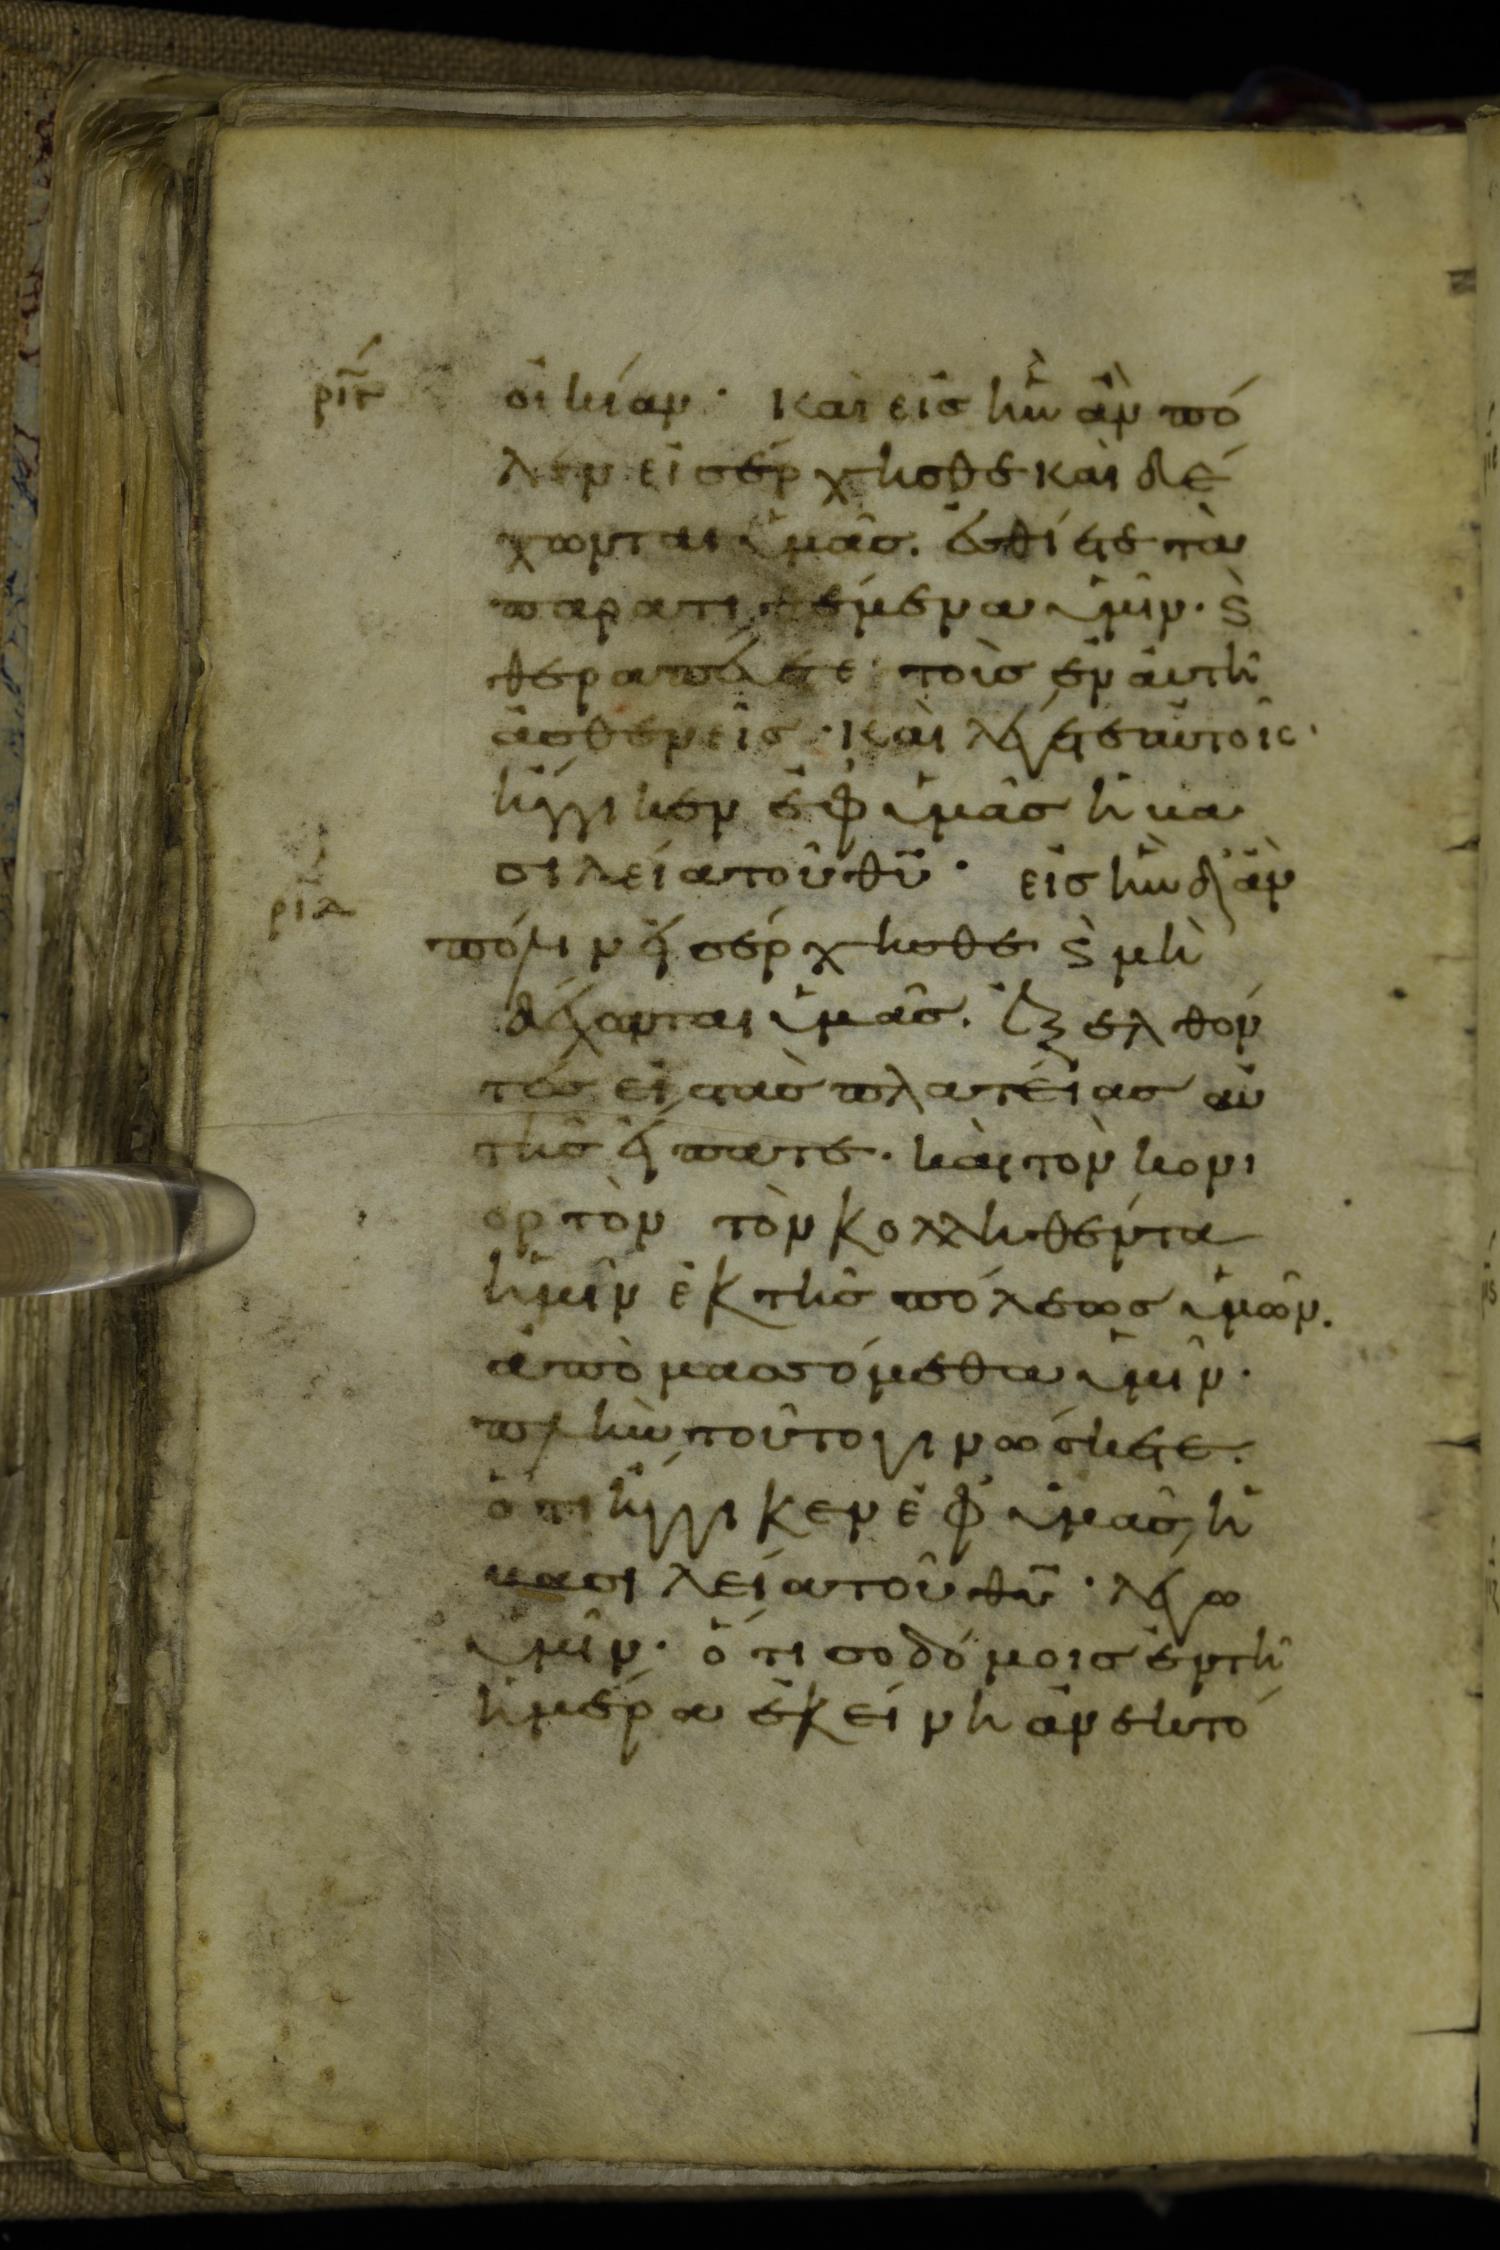 ριγ
οἰκίαν· καὶ εἰς ἣν ἂν πό
λιν εἰσέρχησθε καὶ δέ
χωνται ὑμᾶς. ἐσθίετε τὰ
παρατιθέμενα ὑμῖν· ϗ
θεραπεύετε τοὺς ἐν αὐτῆ
ἀσθενεῖς· καὶ λέγετε αὐτοῖς·
ἤγγικεν ἐφ ὑμᾶς ἡ βα
σιλεία τοῦ θῡ· εἰς ἣν δ ἂν
ριδ
πόλιν εἰσέρχησθε ϗ μὴ
δέχονται ὑμᾶς. ἐξελθόν
τες εἰς τὰς πλατείας αὐ
τῆς εἴπατε. καὶ τὸν κονι
ορτὸν τὸν κολληθέντα
ἡμῖν ἐκ τῆς πόλεως ὑμῶν.
ἀπομασσόμεθα ὑμῖν·
πλὴν τοῦτο γινώσκετε.
ὅτι ἤγγικεν ἐφ ὑμᾶς ἡ
βασιλεία τοῦ θῡ· λέγω
ὑμῖν· ὅτι σοδόμοις ἐν τῆ
ἡμέρα ἐκείνη ἀνεκτό